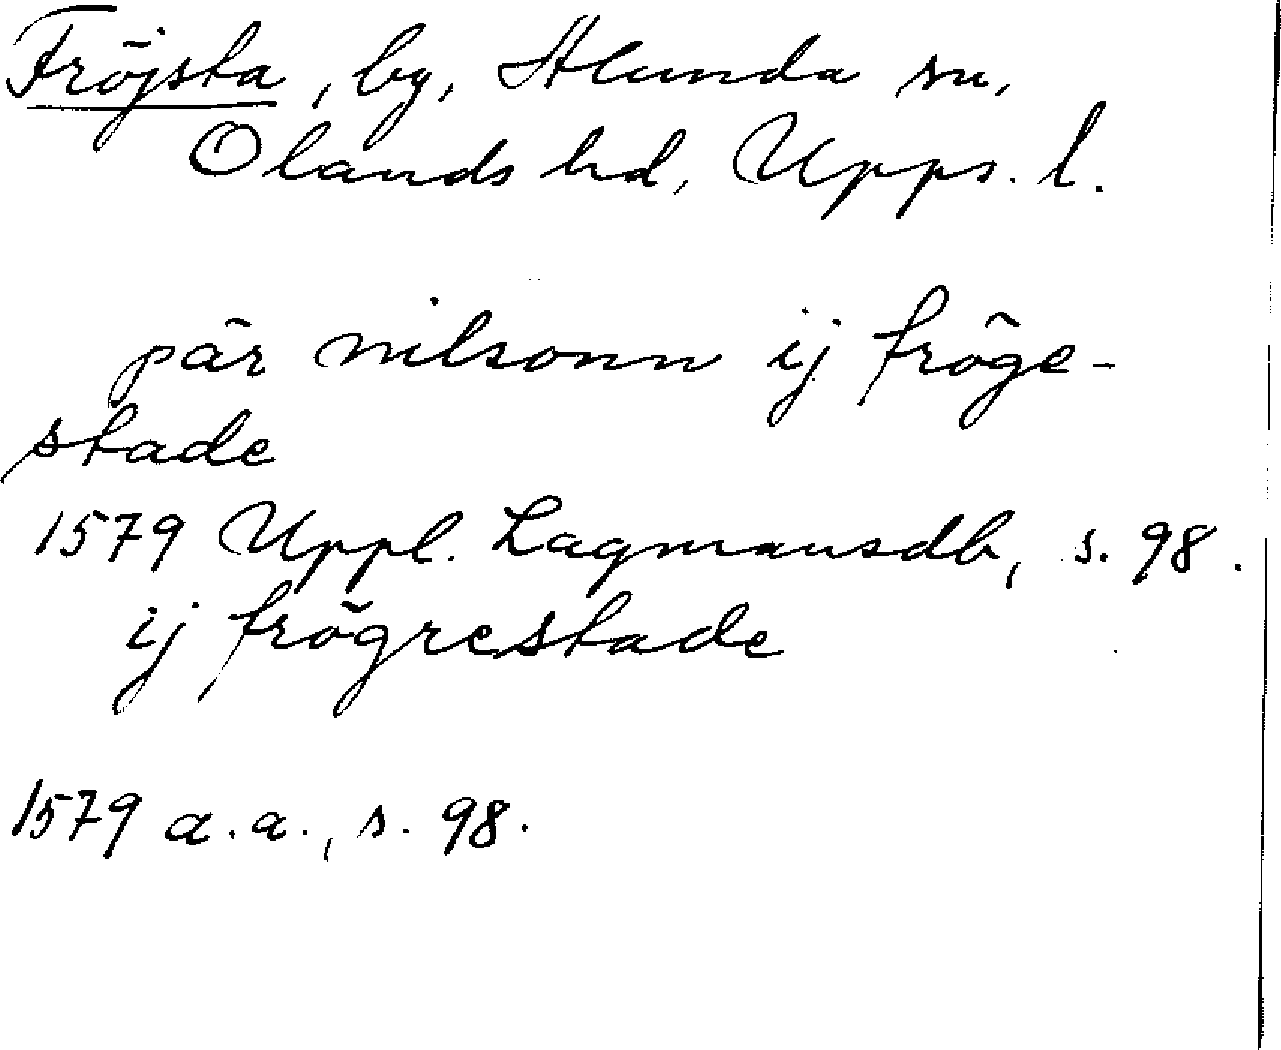 Fröjsta, by, Alunda sn,
Olands hd, Upps. l.
pär nilsonn ij fröge-
stade
1579 Uppl. Lagmansdb, s. 98.
ij frögrestade
1579 a.a., s. 98.